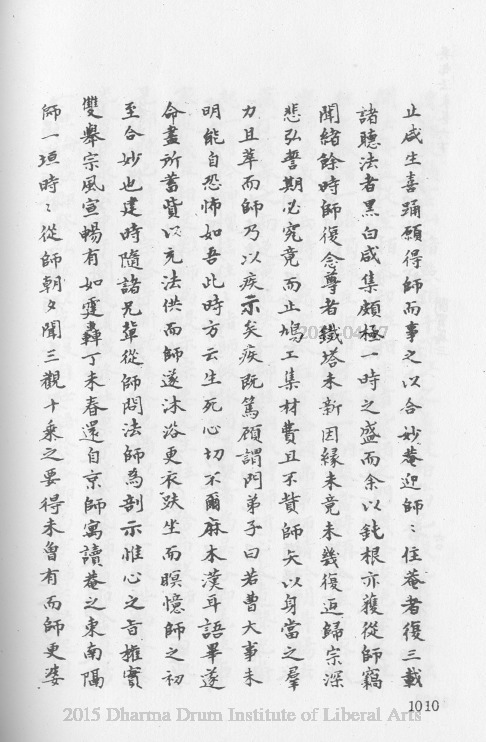 止咸生喜踊願得師而事之以合妙菴迎師〻住菴者復三載
諸聽法者黑白咸集頗極一時之盛而余以鈍根亦獲從師竊
聞緒餘時師復念尊者鐵塔未新因緣未竟未幾復返歸宗深
悲弘誓期必究竟而止鳩工集材費且不貲師矢以身當之羣
力且萃而師乃以疾示矣疾既篤顧謂門弟子曰若曹大事未
明能自恐怖如吾此時方云生死心切不爾麻木漢耳語畢遂
命盡所蓄貲以充法供而師遂沐浴更衣趺坐而瞑憶師之初
至合妙也建時隨諸兄輩從師問法師為剖示惟心之旨權實
雙舉宗風宣暢有如霆轟丁未春還自京師寓讀菴之東南隅
師一垣時〻從師朝夕聞三觀十乘之要得未曾有而師更婆
1010
2015 Dharma Drum Institute of Liberal Arts